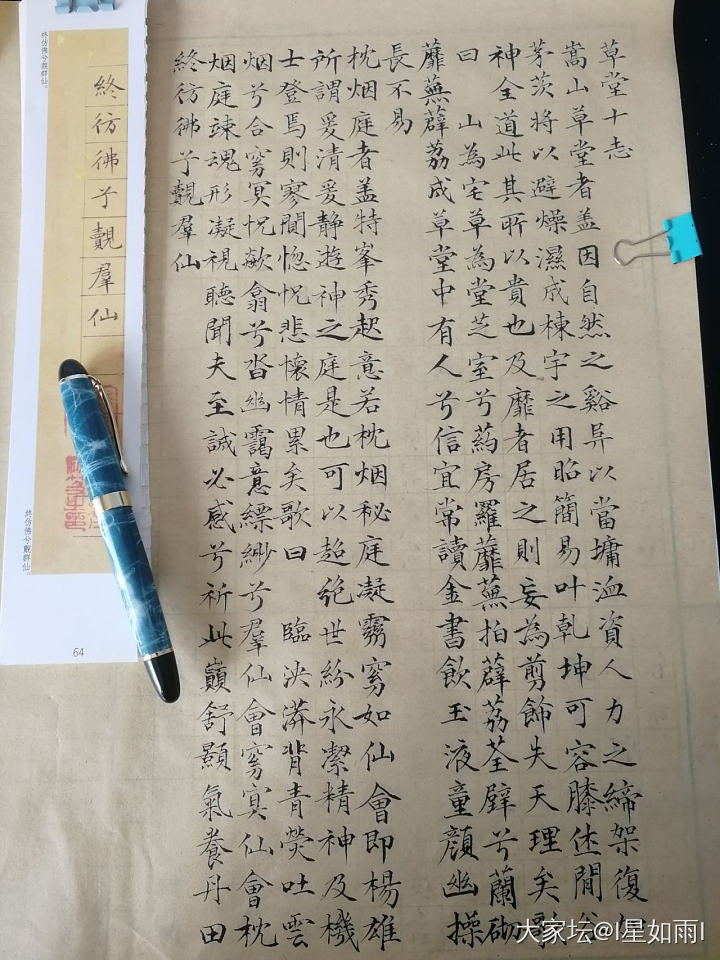 草堂十志
嵩山草堂者盖因自然之谿异以當墉洫資人力之締架復
茅茨將以避燥濕成棟宇之用昭簡易叶乾坤可容膝休閒谷
神全道此其所以貴也及靡者居之則妄為剪飾失天理矣歌
曰 山為宅草為堂芝室兮葯房羅蘼蕪拍薜荔荃壁兮蘭砌
蘼蕪薜荔成草堂中有人兮信宜常讀金書飲玉液童顏幽操
長不易
枕烟庭者盖特峯秀起意若枕烟秘庭凝霧窅如仙會即楊雄
所謂爰清爰静遊神之庭是也可以超絶世紛永潔精神及機
士登焉則寥間惚怳悲懷情累矣歌曰 臨泱漭背青熒吐雲
烟兮合窅冥怳欻翕兮沓幽靄意縹緲兮羣仙會窅冥仙會枕
烟庭竦魂形凝視聽聞夫至誠必感兮祈此巔舒顥氣養丹田
終彷彿兮覿羣仙
終彷彿兮覿羣仙
终仿佛兮觌群仙。
终仿佛兮觌群仙。
64
大家坛@I星如雨I